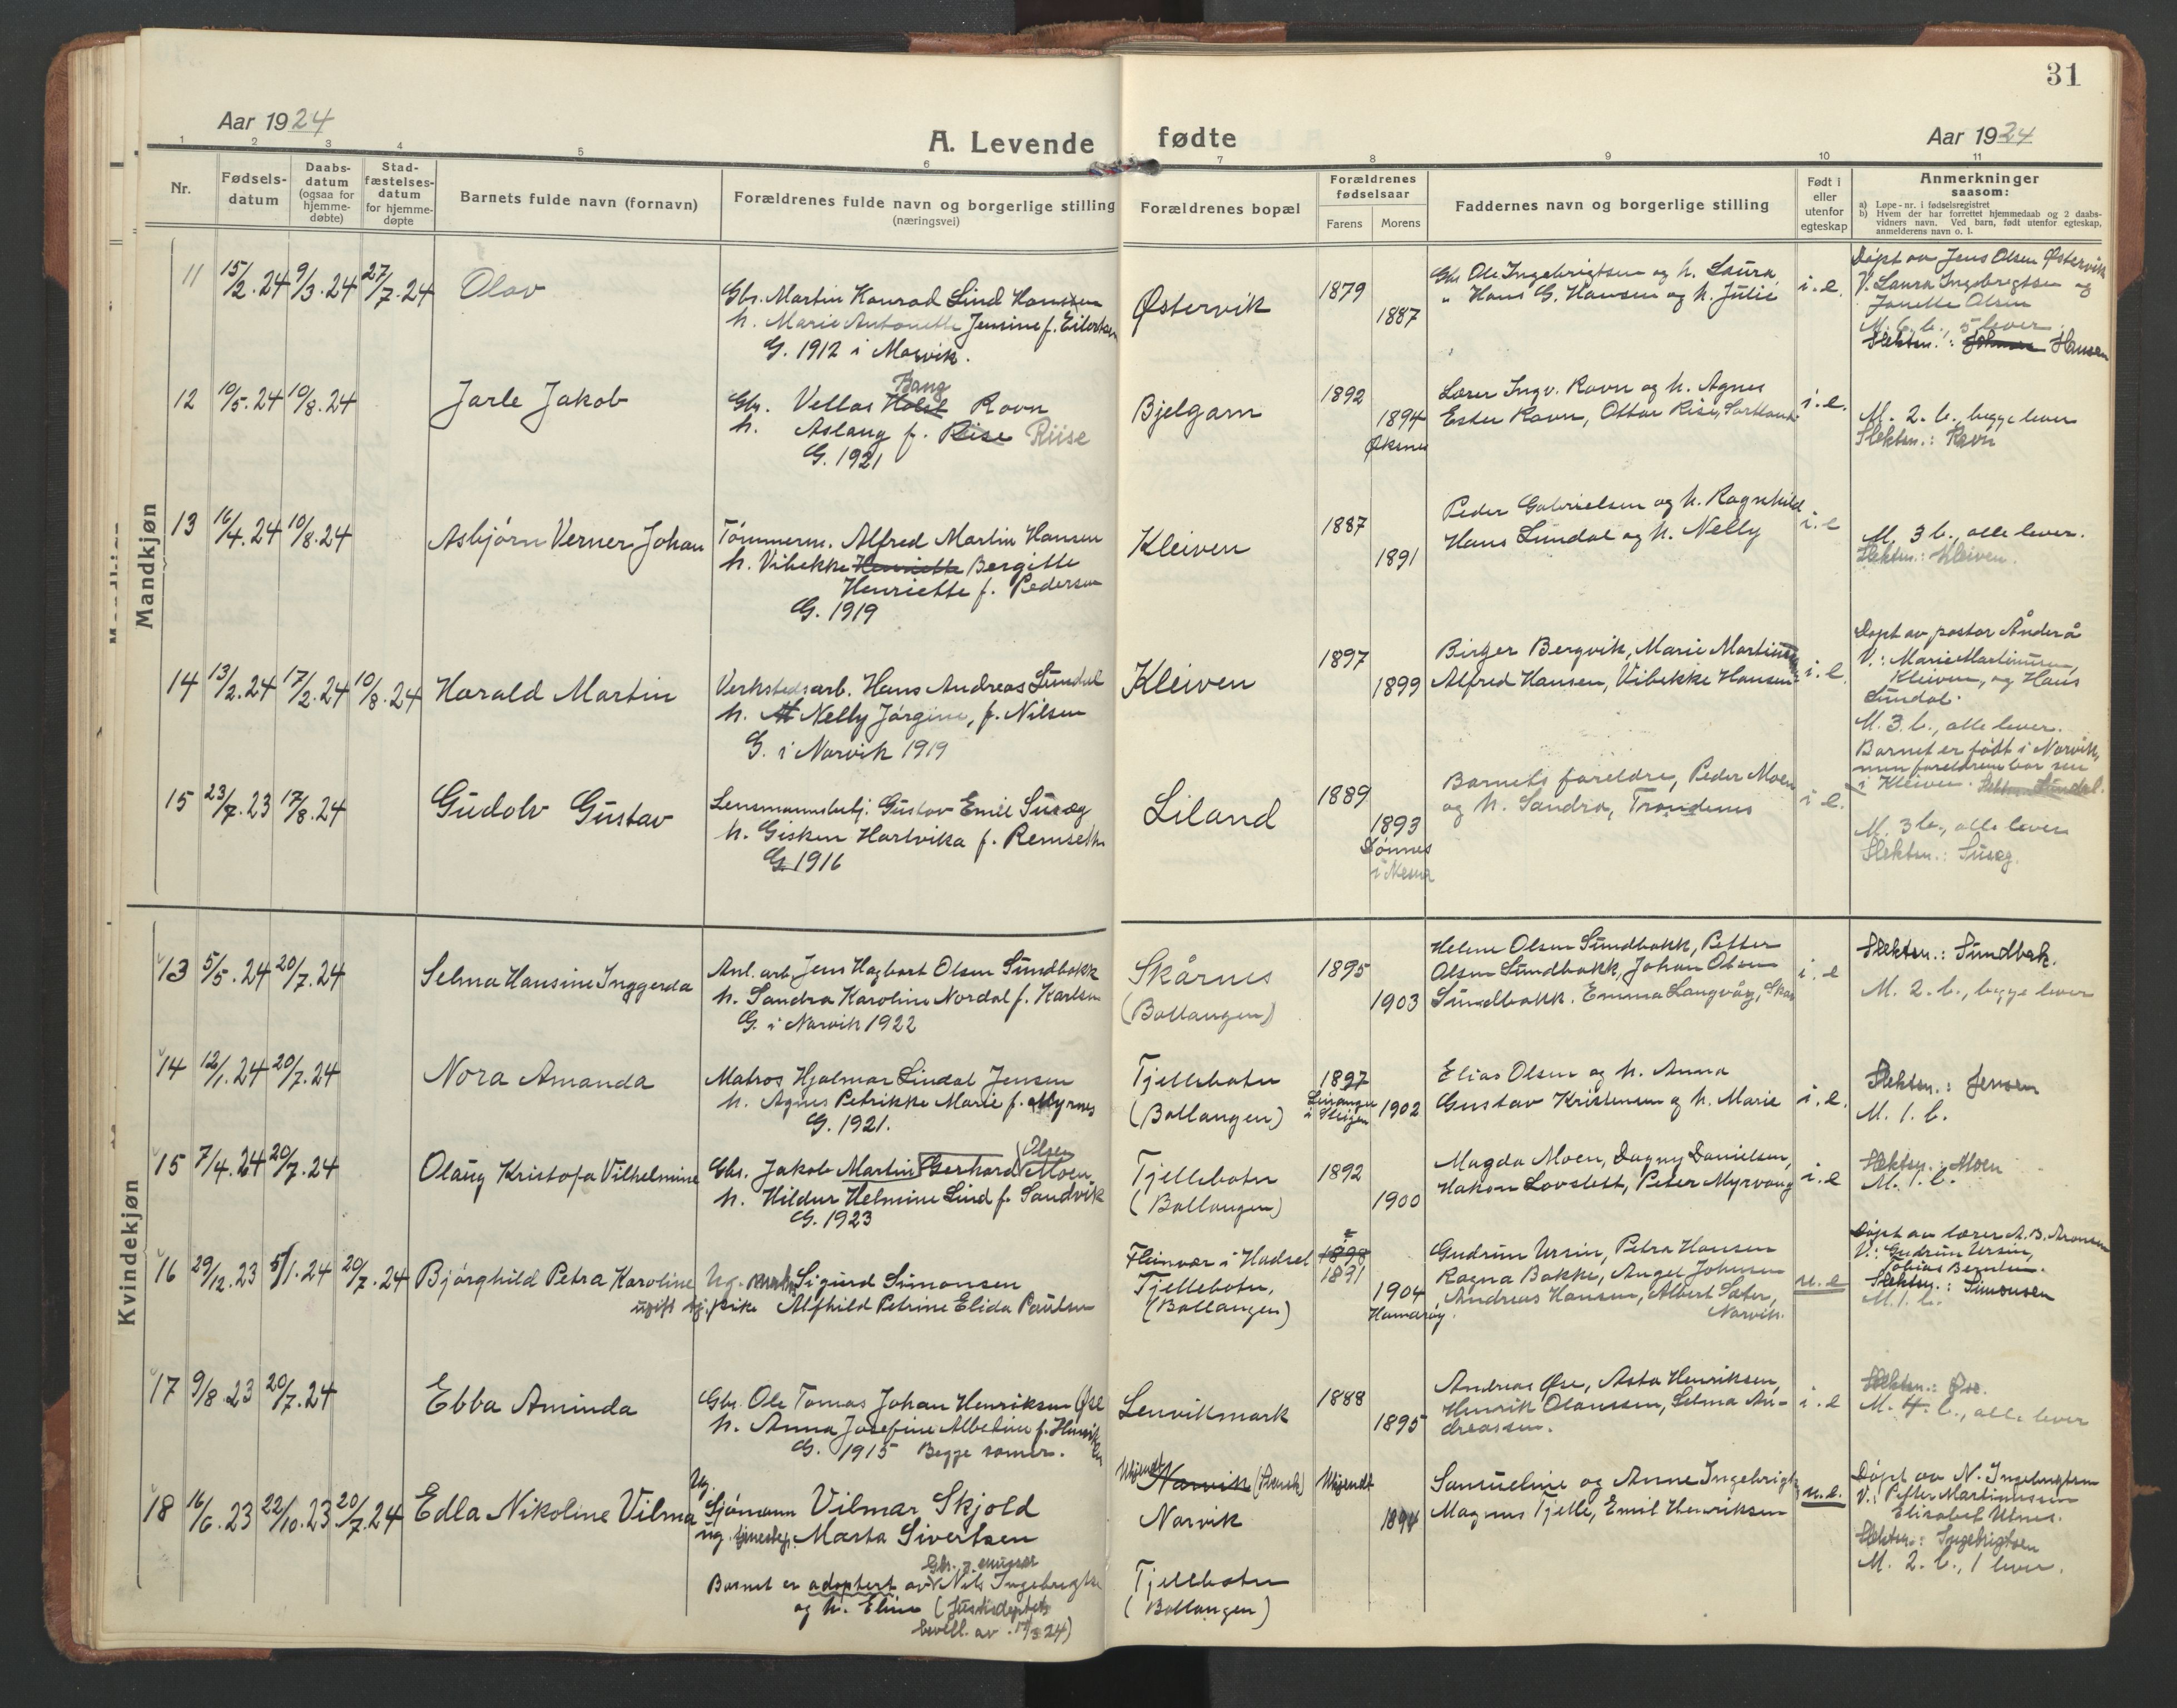 31
Aar 1924
A. Levende fødte
Aar 1924
1 2 3 4 5 6 7 8 9 10 11
Nr.
Fødsels-datum
Daabs-datum (ogsaa for hjemme-døbte)
Stad-fæstelses-datum for hjemme-døpte
Barnets fulde navn (fornavn)
Forældrenes fulde navn og borgerlige stilling
(næringsvei)
Forældrenes bopæl
Forældrenes fødselsaar
Farens Morens
Faddernes navn og borgerlige stilling
Født i eller utenfor egteskap
Anmerkninger
saasom:
a) Løpe-nr. i fødselsregistret
b) Hvem der har forrettet hjemmedaab og 2 daabs-
vidners navn. Ved barn, født utenfor egteskap,
anmelderens navn o. l.
Mandkjøn
11 15/2.24 9/3.24 27/7.24 Olav
Gbr. Martin Konrad Lind Hansen
h. Marie Antonette Jensine f. Eilertsen
G. 1912 i Narvik.
Østervik
1879
1887
Gbr. Ole Ingebrigtsen og h. Laura
" Hans G. Hansen og h. Julie
i.e.
Døpt av Jens Olsen Østervik
V. Laura Ingebrigtsen og
Janette Olsen
M. 6 b., 5 lever
Slektsn.: Hansen
12 10/5.24 10/8.24 Jarle Jakob
Bang
Gbr. Vellas Holst Ravn
h. Aslaug f. Riise Riise
G. 1921
Bjelgam
1892
1894
Øksnes
Lærer Ingv. Ravn og h. Agnes
Ester Ravn, Ottar Rise, Sortland
i.e.
M. 2. b., begge lever
Slektsn.: Ravn
13 16/4.24 10/8.24 Asbjørn Verner Johan
Tømmerm. Alfred Martin Hansen
h. Vibekke Henriette Bergitte
Henriette f. Pedersen
G. 1919
Kleiven
1887
1891
Peder Gabrielsen og h. Ragnhild
Hans Lundal og h. Nelly
i.e
M. 3 b., alle lever.
Slektsn.: Kleiven.
14 13/2.24 17/2.24 10/8.24 Harald Martin
Verkstedsarb. Hans Andreas Lundal
h. Nelly Jørgine, f. Nilsen
G. i Narvik 1919
Kleiven
1897
1899
Birger Bergvik, Marie Martinusen
Alfred Hansen, Vibekke Hansen
i.e.
Døpt av pastorÅnderå
V.: Marie Martinusen,
Kleiven, og Hans
Lundal.
M. 3 b., alle lever.
Barnet er født i Narvik,
men foreldrene bor nu
i Kleiven. Slektsn. Lundal.
15 23/7.23 17/8.24 Gudolv Gustav
Lensmannsbetj. Gustav Emil Suseg
h. Gisken Hartvika f. Remseth
G. 1916
Liland
1889
1893
Dønnes
i Nesna
Barnets foreldre, Peder Moen
og h. Sandra, Trondenes
i.e.
M. 3 b., alle lever
Slektsn.: Suseg.
Kvindekjøn
13 5/5.24 20/7.24 Selma Hansine Inggerda
Anl. arb. Jens Hagbart Olsen Sundbakk
h. Sandra Karoline Nordal f. Karlsen
G. i Narvik 1922
Skårnes
(Ballangen)
1895
1903
Helene Olsen Sundbakk, Petter
Olsen Sundbakk, Johan Olsen
Sundbakk. Emma Langvåg,
i.e
Slektsn.: Sundbak.
M. 2. b., begge lever
14 12/1.24 20/7.24 Nora Amanda
Matros Hjalmar Lindal Jensen
h. Agnes Petrikke Marie f. Myrnes
G. 1921.
Tjellebotn
(Ballangen)
1897
i Steigen
1902
Elias Olsen og h. Anna
Gustav Kristensen og h. Marie
i.e.
Slektsn.: Jensen
M. 1. b.
15 7/4.24 20/7.24 Olaug Kristofa Vilhelmine
Olsen
Gbr. Jakob Martin Gerhard Moen
h. Hildur Helmine Lind f. Sandvik
G. 1923
Tjellebotn
(Ballangen)
1892
1900
Magda Moen, Dagny Danielsen,
Håkon Lovslett, Peter Myrvang
i.e
Slektsn.: Moen
M. 1. b.
16 29/12.23 5/1.24 20/7.24 Bjørghild Petra Karoline
Ug. Sigurd Simonsen
ugift tj. pike Alfhild Petrine Elida Paulsen
Fleinvær i Hadsel
Tjellebotn.
(Ballangen)
1898
1891
1904
Hamarøy.
Gudrun Ursin, Petra Hansen
Ragna Bakke, Angel Johnsen
Andreas Hansen, Albert Sæter,
Narvik.
u.e
Døpt av lærer A. B. Aronsen
V.: Gudrun Ursin,
Tobias Berntsen.
Slektsn.: Simonsen
M. 1. b.
17 9/8.23 20/7.24 Ebba Aminda
Gbr. Ole Tomas Johan Henriksen Øse
h. Anna Josefine Albetine f. Henriksen
G. 1915 Begge samer.
Lenvikmark
1888
1895
Andreas Øse, Asta Henriksen,
Henrik Olaussen, Selma An-
dreassen.
i.e
Slektsn.: Øse.
M. 4. b., alle lever
18 16/6.23 22/10.23 20/7.24 Edla Nikoline Vilma
Ug.
Sjømann Vilmar Skjold
ug. tjenestep. Marta Sivertsen
Gbr. og emissær
Barnet er adoptert av Nils Ingebrigtsen
og h. Eline (Justisdeptets
bevill. av 24)
Ukjendt Narvik (Dansk)
Narvik
Tjellebotn
(Ballangen)
Ukjendt
1894
Samueline og Anne Ingebrigts
Magnus Tjelle, Emil Henriksen
u.e.
Døpt av N. Ingebrigtsen
V.: Petter Martinussen
Elisabet Utnes.
Slektsn.: Ingebrigtsen
M. 2. b., 1 lever.